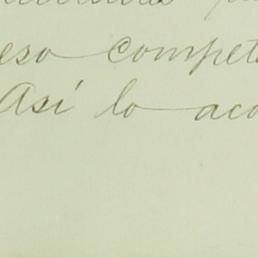 eso compet
Así lo aco